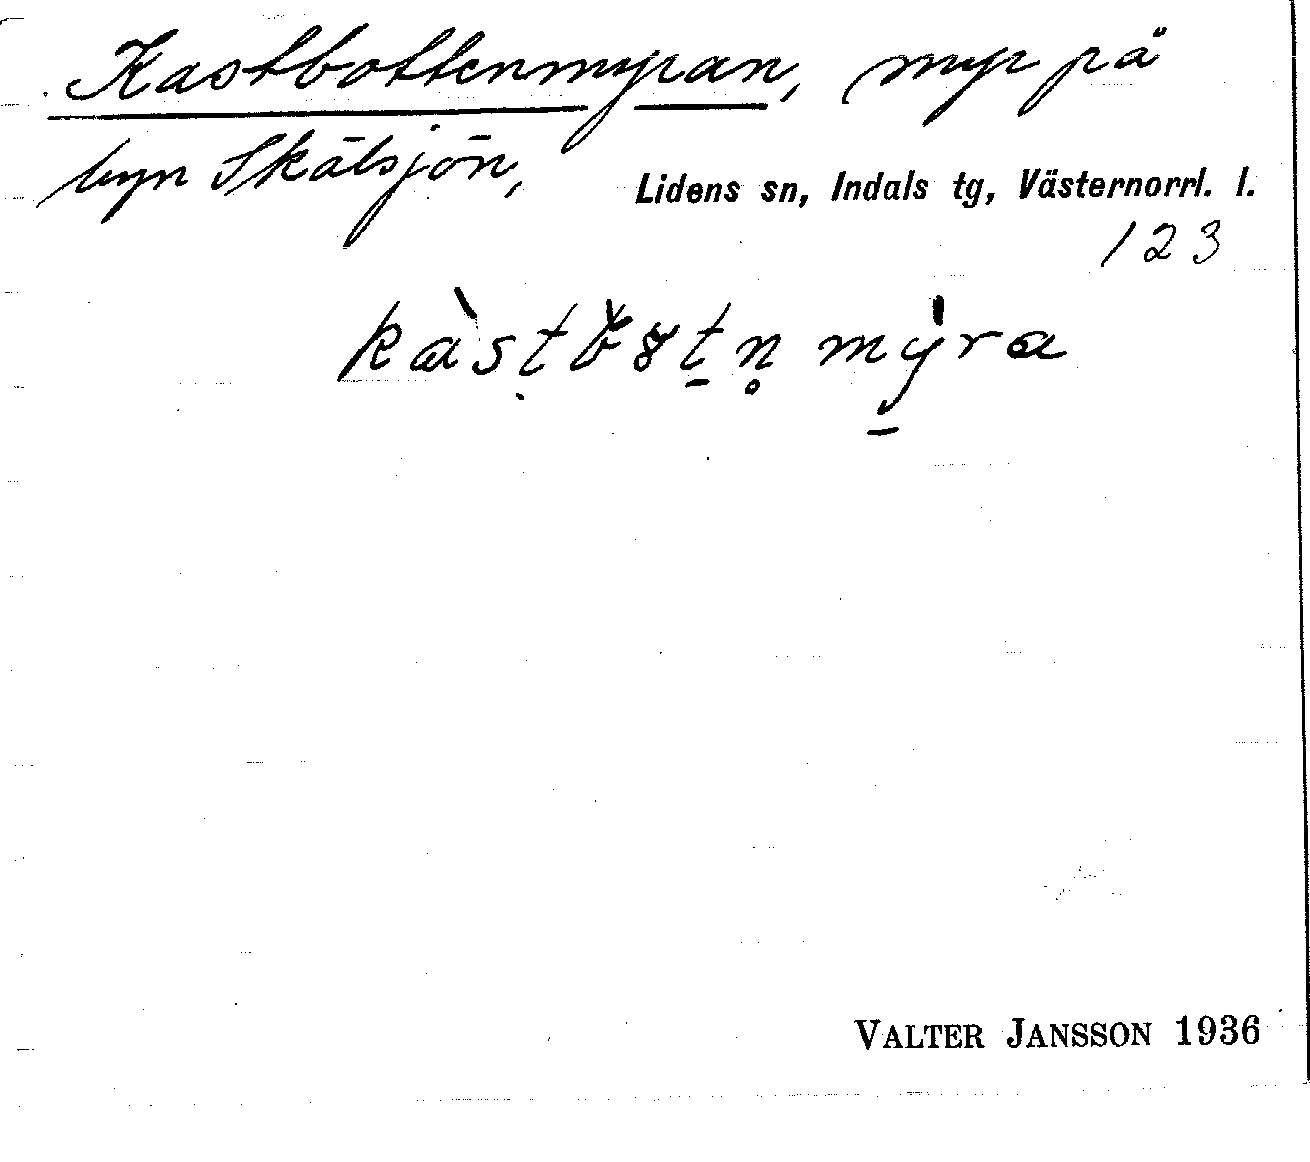 Kastbottenmyran, myr på
byn Skälsjön,
Lidens sn, Indals tg, Västernorrl. l.
123
VALTER JANSSON 1936